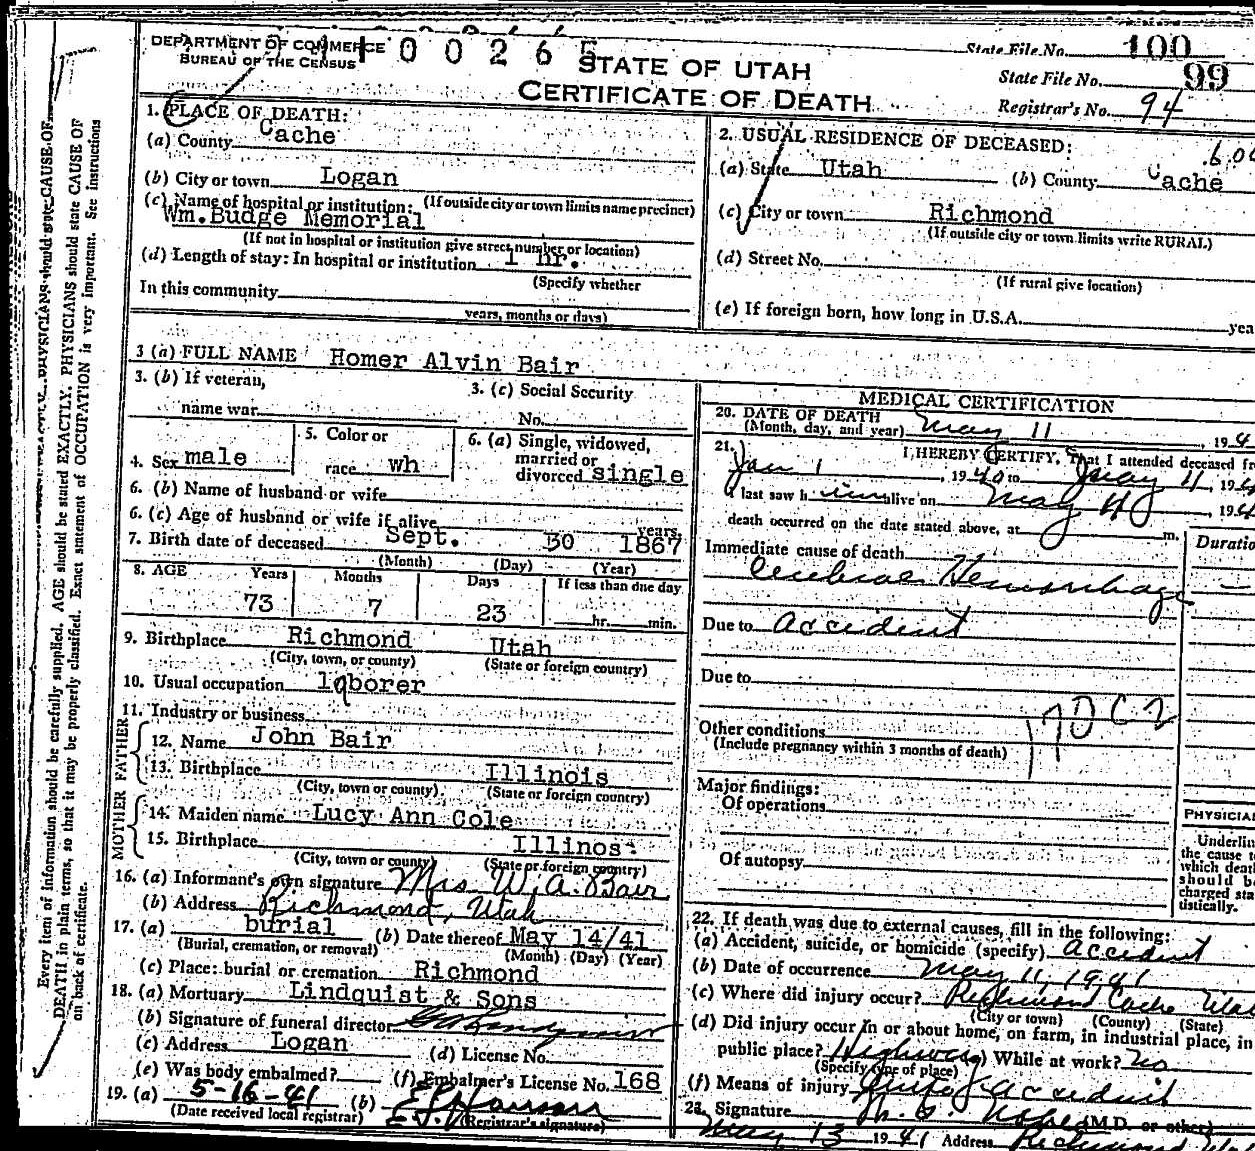 DEPARTMENT OF COMMERCE
BUREAU OF THE CENSUS
100265
STATE OF UTAH
CERTIFICATE OF DEATH
State File No. 100
State File No. 99
Registrar's No. 94
Every item of information should be carefully supplied. AGE should be stated EXACTLY. PHYSICIANS should state CAUSE OF
DEATH in plain terms, so that it may be properly classified. Exact statement of OCCUPATION is very important. See instructions
on back of certificate.
1. PLACE OF DEATH:
(a) County Cache
(b) City or town Logan
(If outside city or town limits name precinct)
(c) Name of hospital or institution:
Wm. Budge Memorial
(If not in hospital or institution give street number or location)
(d) Length of stay: In hospital or institution 1 hr.
(Specify whether
In this community
years, months or days)
2. USUAL RESIDENCE OF DECEASED:
(a) State Utah (b) County Cache
(c) City or town Richmond
(If outside city or town limits write RURAL)
(d) Street No.
(If rural give location)
(e) If foreign born, how long in U.S.A.
3 (a) FULL NAME Homer Alvin Bair
3. (b) If veteran,
name war
3. (c) Social Security
No.
4. Sex male
5. Color or
race wh
6. (a) Single, widowed,
married or
divorced single
6. (b) Name of husband or wife
6. (c) Age of husband or wife if alive years
7. Birth date of deceased Sept. 30 1867
(Month) (Day) (Year)
8. AGE Years Months Days If less than one day
73 7 23 hr. min.
9. Birthplace Richmond Utah
(City, town, or county) (State or foreign country)
10. Usual occupation laborer
11. Industry or business
FATHER
12. Name John Bair
13. Birthplace Illinois
(City, town or county) (State or foreign country)
MOTHER
14. Maiden name Lucy Ann Cole
15. Birthplace Illinos
(City, town or county) (State or foreign country)
16. (a) Informant's own signature Mrs W. A. Bair
(b) Address Richmond, Utah
17. (a) burial (b) Date thereof May 14/41
(Burial, cremation, or removal) (Month) (Day) (Year)
(c) Place: burial or cremation Richmond
18. (a) Mortuary Lindquist & Sons
(b) Signature of funeral director
(c) Address Logan (d) License No.
(e) Was body embalmed? (f) Embalmer's License No. 168
19. (a) 5-16-41 (b)
(Date received local registrar) (Registrar's signature)
MEDICAL CERTIFICATION
20. DATE OF DEATH
(Month, day, and year) May 11, 194
21. I HEREBY CERTIFY, That I attended deceased fr
Jan 1, 1940 to May 11, 194
I last saw him alive on May 11, 194
death occurred on the date stated above, at m.
Immediate cause of death Duratio
Cerebral Hemorrhage
Due to Accident
Due to
170 C 2
Other conditions
(Include pregnancy within 3 months of death)
Major findings:
Of operations
Of autopsy
PHYSICIA
Underlin
the cause t
which deat
should b
charged sta
tistically.
22. If death was due to external causes, fill in the following:
(a) Accident, suicide, or homicide (specify) Accident
(b) Date of occurrence May 11, 1941
(c) Where did injury occur? Richmond Cache Utah
(City or town) (County) (State)
(d) Did injury occur in or about home, on farm, in industrial place, in
public place? Highway While at work? No
(Specify type of place)
(f) Means of injury Auto accident
23. Signature (M.D. or other)
May 13 1941 Address Richmond